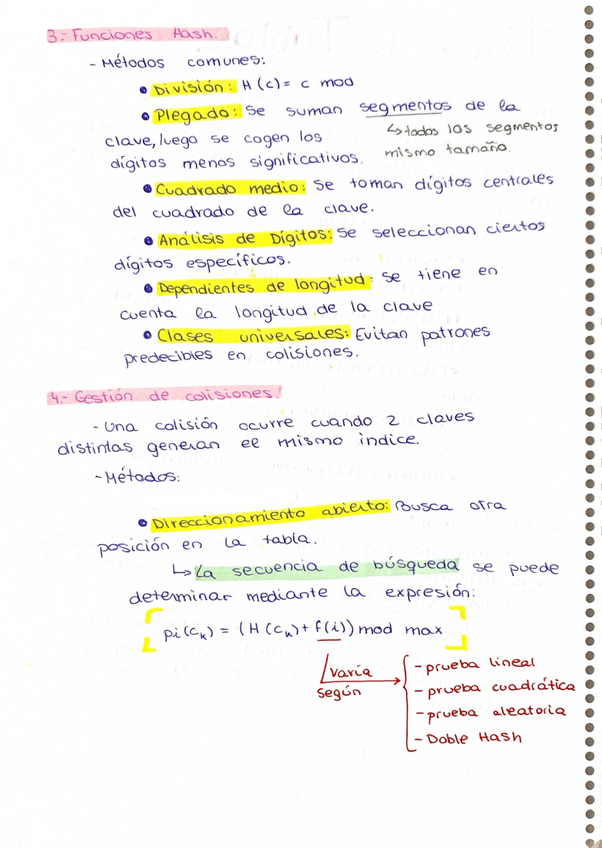 3.- Funciones Hash.
- Métodos comunes:
• División: H(c) = c mod
• Plegado: Se suman segmentos de la
clave, luego se cogen los
↳ todos los segmentos
dígitos menos significativos.
mismo tamaño.
• Cuadrado medio: Se toman dígitos centrales
del cuadrado de la clave.
• Análisis de Dígitos: Se seleccionan ciertos
dígitos específicos.
• Dependientes de longitud: Se tiene en
cuenta la longitud de la clave
• Clases universales: Evitan patrones
predecibles en colisiones.
4.- Gestión de colisiones.
- Una colisión ocurre cuando 2 claves
distintas generan el mismo índice.
- Métodos:
• Direccionamiento abierto: Busca otra
posición en la tabla.
↳ La secuencia de búsqueda se puede
determinar mediante la expresión:
[pi(ck) = (H(ck) + f(i)) mod max]
varía
según
- prueba lineal
- prueba cuadrática
- prueba aleatoria
- Doble Hash